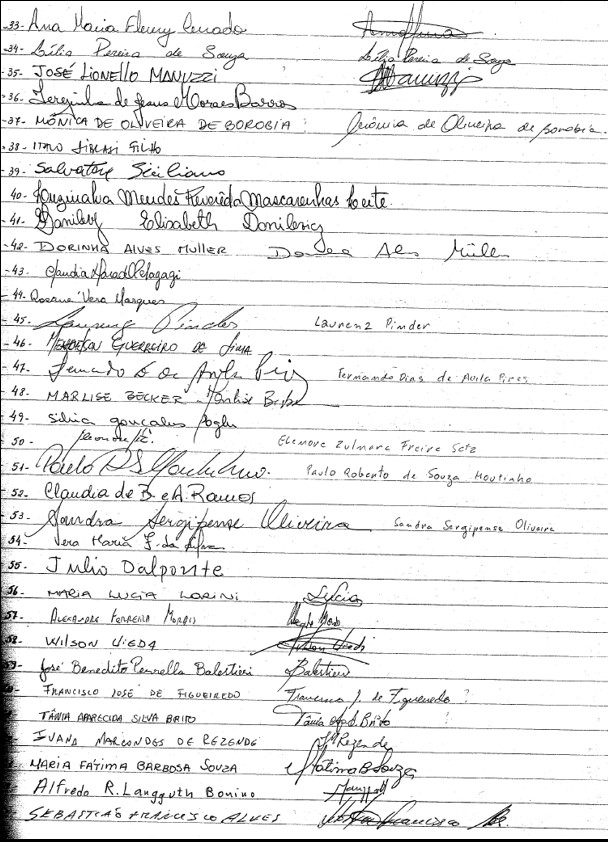 -33- Ana Maria Fleury Curado
-34- Lília Pereira de Souza Lília Pereira de Souza
-35- JOSÉ LIONELLO MANUZZI Manuzzi
-36- Terezinha de Jesus Moraes Barros
-37- MÔNICA DE OLIVEIRA DE BOROBIA Mônica de Oliveira de Borobia
-38- ITALO FILHO
-39- Salvatore Siciliano
-40- Luzinalva Mendes Mascarenhas Leite.
-41- Danilevicz Elisabeth Danilevicz
-42- DORINHA ALVES MULLER Alves Müller
-43- Claudia
-44- Rosane Vera Marques
-45- Laurenz Pinder Laurenz Pinder
-46- GUERREIRO DE LIMA
-47- Fernando D. de Avila Pires Fernando Dias de Avila Pires
-48- MARLISE BECKER - Marlise Becker
-49- Silvia Gonçalves
50- Eleonore Zulmara Freire Setz
-51- Paulo RS Moutinho. Paulo Roberto de Souza Moutinho
-52- Claudia de B. e A. Ramos
-53- Sandra Sergipense Oliveira Sandra Sergipense Oliveira
54- Vera Maria F. da Silva
-55- Julio Dalponte
56- MARIA LUCIA LORINI Lúcia
-57- ALEXANDRE FERREIRA
58- WILSON UIEDA Wilson Uieda
59- José Benedito Perrella Balestieri Balestieri
FRANCISCO JOSÉ DE FIGUEIREDO Francisco J. de Figueiredo
TÂNIA APARECIDA SILVA BRITO Tânia Ap. S. Brito
IVANA MARCONDES DE REZENDE Rezende
MARIA FATIMA BARBOSA SOUZA Fátima B Souza
Alfredo R. Langguth Bonino
SEBASTIÃO FRANCISCO ALVES Francisco